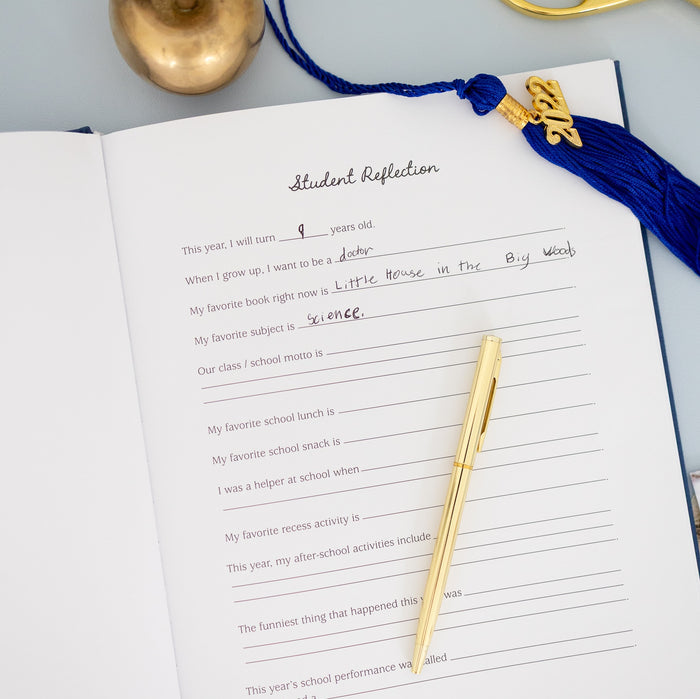 2022
Student Reflection
This year, I will turn 9 years old.
When I grow up, I want to be a doctor.
My favorite book right now is Little House in the Big Woods
My favorite subject is Science.
Our class / school motto is
My favorite school lunch is
My favorite school snack is
I was a helper at school when
My favorite recess activity is
This year, my after-school activities include
The funniest thing that happened this was
This year's school performance was called
a